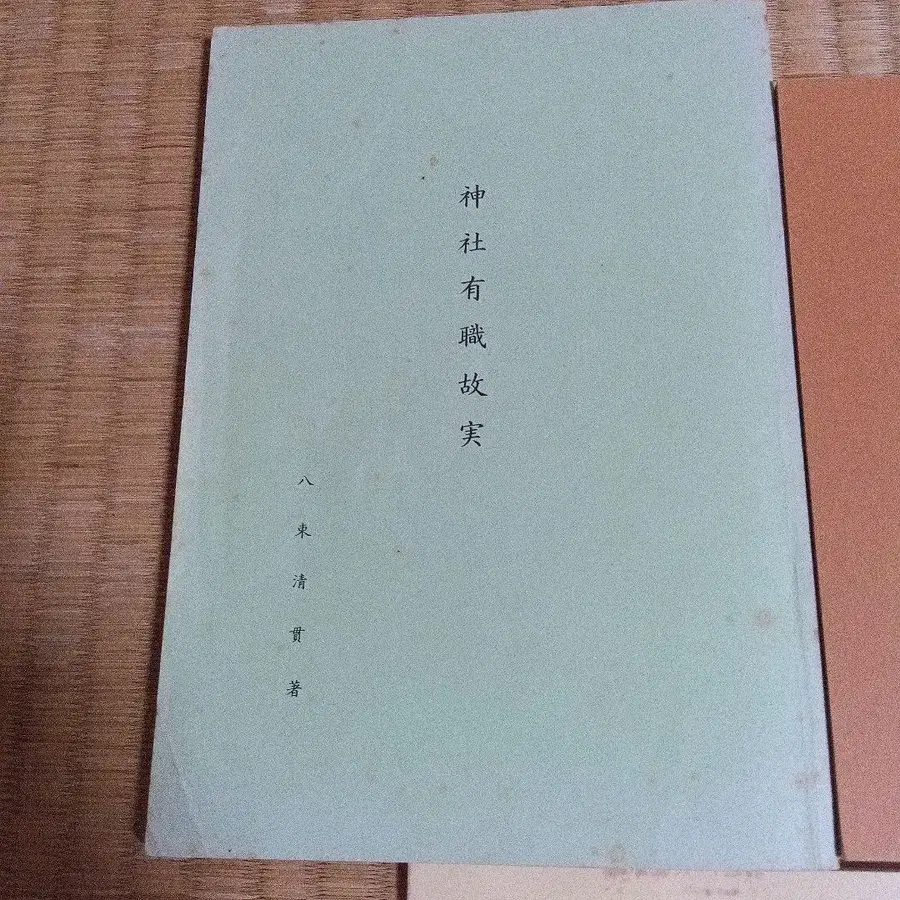 神社有職故実
八束清貫著